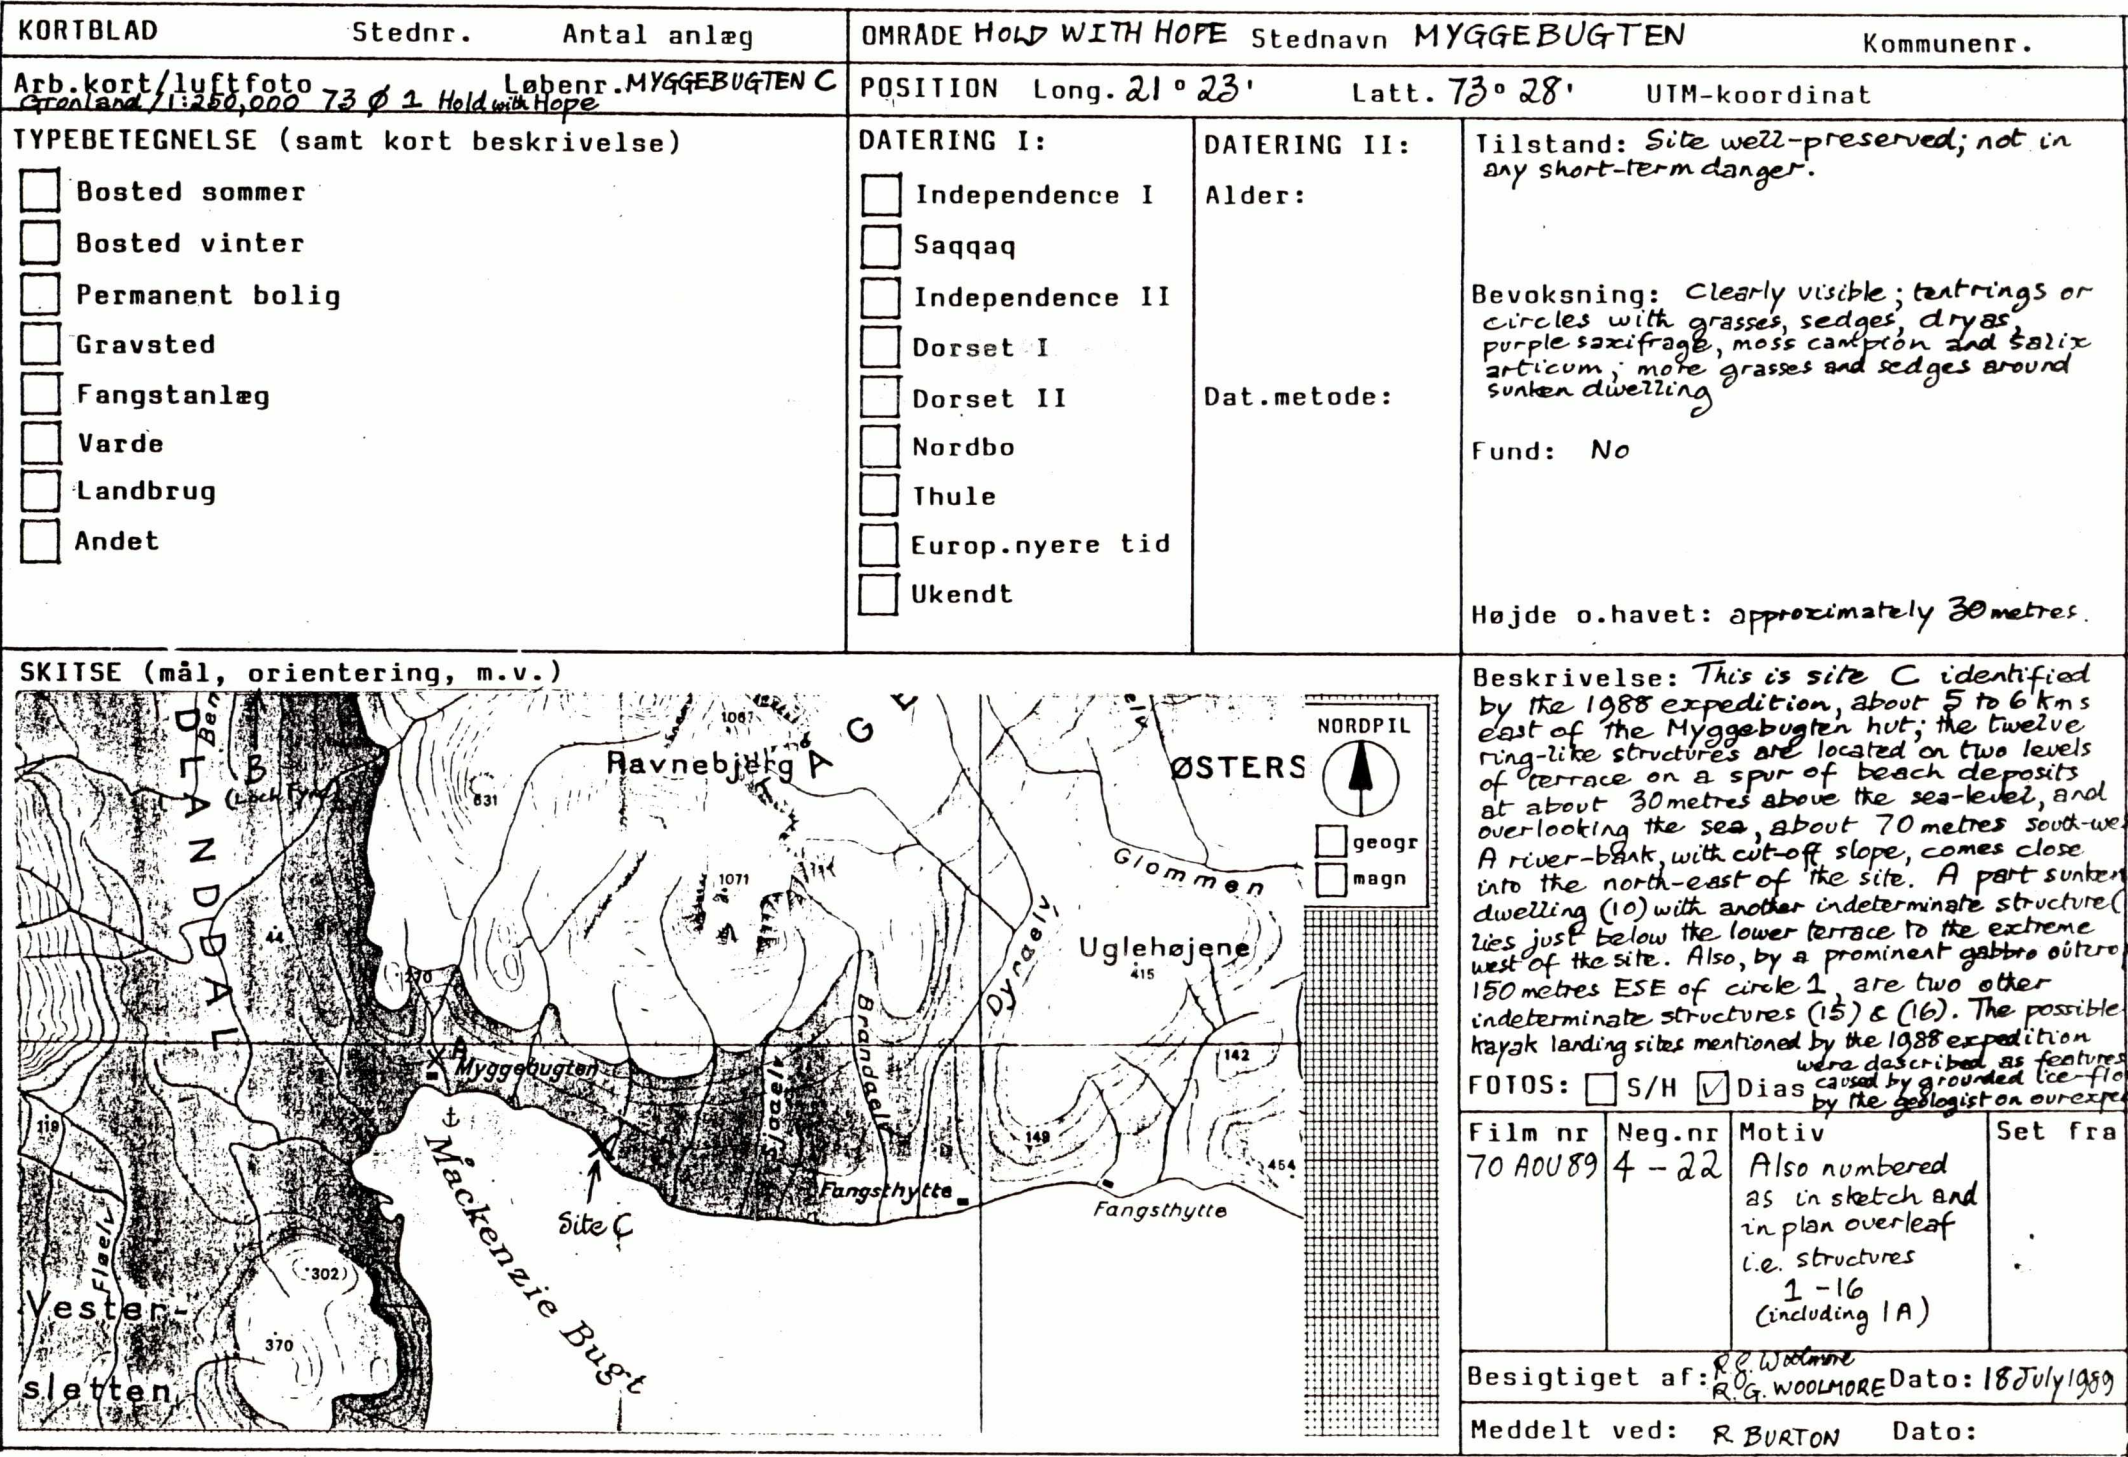 KORTBLAD Stednr. Antal anlæg
OMRÅDE HOLD WITH HOPE Stednavn MYGGEBUGTEN Kommunenr.
Arb.kort/luftfoto Løbenr. MYGGEBUGTEN C
Grønland/1:250,000 73 Ø 1 Hold with Hope
POSITION Long. 21° 23' Latt. 73° 28' UTM-koordinat
TYPEBETEGNELSE (samt kort beskrivelse)
Bosted sommer
Bosted vinter
Permanent bolig
Gravsted
Fangstanlæg
Varde
Landbrug
Andet
DATERING I:
Independence I
Saqqaq
Independence II
Dorset I
Dorset II
Nordbo
Thule
Europ.nyere tid
Ukendt
DATERING II:
Alder:
Dat.metode:
Tilstand: Site well-preserved; not in
any short-term danger.
Bevoksning: Clearly visible; tentrings or
circles with grasses, sedges, dryas,
purple saxifrage, moss campion and salix
articum; more grasses and sedges around
sunken dwelling
Fund: No
Højde o.havet: approximately 30 metres.
SKITSE (mål, orientering, m.v.)
DLANDDAL
B
1067
Ravnebjerg
AGE
elv
ØSTERS
831
1071
44
Glommen
Dyraelv
Uglehøjene
415
370
Brandaelv
A
Myggebugten
142
119
149
454
Fangsthytte
Fangsthytte
Site C
Mackenzie Bugt
Fløelv
302
370
Vester-
sletten
NORDPIL
geogr
magn
Beskrivelse: This is site C identified
by the 1988 expedition, about 5 to 6 kms
east of the Myggebugten hut; the twelve
ring-like structures are located on two levels
of terrace on a spur of beach deposits
at about 30 metres above the sea-level, and
overlooking the sea, about 70 metres south-we
A river-bank, with cut-off slope, comes close
into the north-east of the site. A part sunken
dwelling (10) with another indeterminate structure (
lies just below the lower terrace to the extreme
west of the site. Also, by a prominent gabbro outcro
150 metres ESE of circle 1, are two other
indeterminate structures (15) & (16). The possible
kayak landing sites mentioned by the 1988 expedition
were described as features
caused by grounded ice-flo
by the geologist on our expe
FOTOS: S/H Dias
Film nr Neg.nr Motiv Set fra
70 AOU 89 4 - 22 Also numbered
as in sketch and
in plan overleaf
i.e. structures
1 - 16
(including 1A)
Besigtiget af: R.G. Woolmore
R.G. WOOLMORE Dato: 18 July 1989
Meddelt ved: R BURTON Dato: